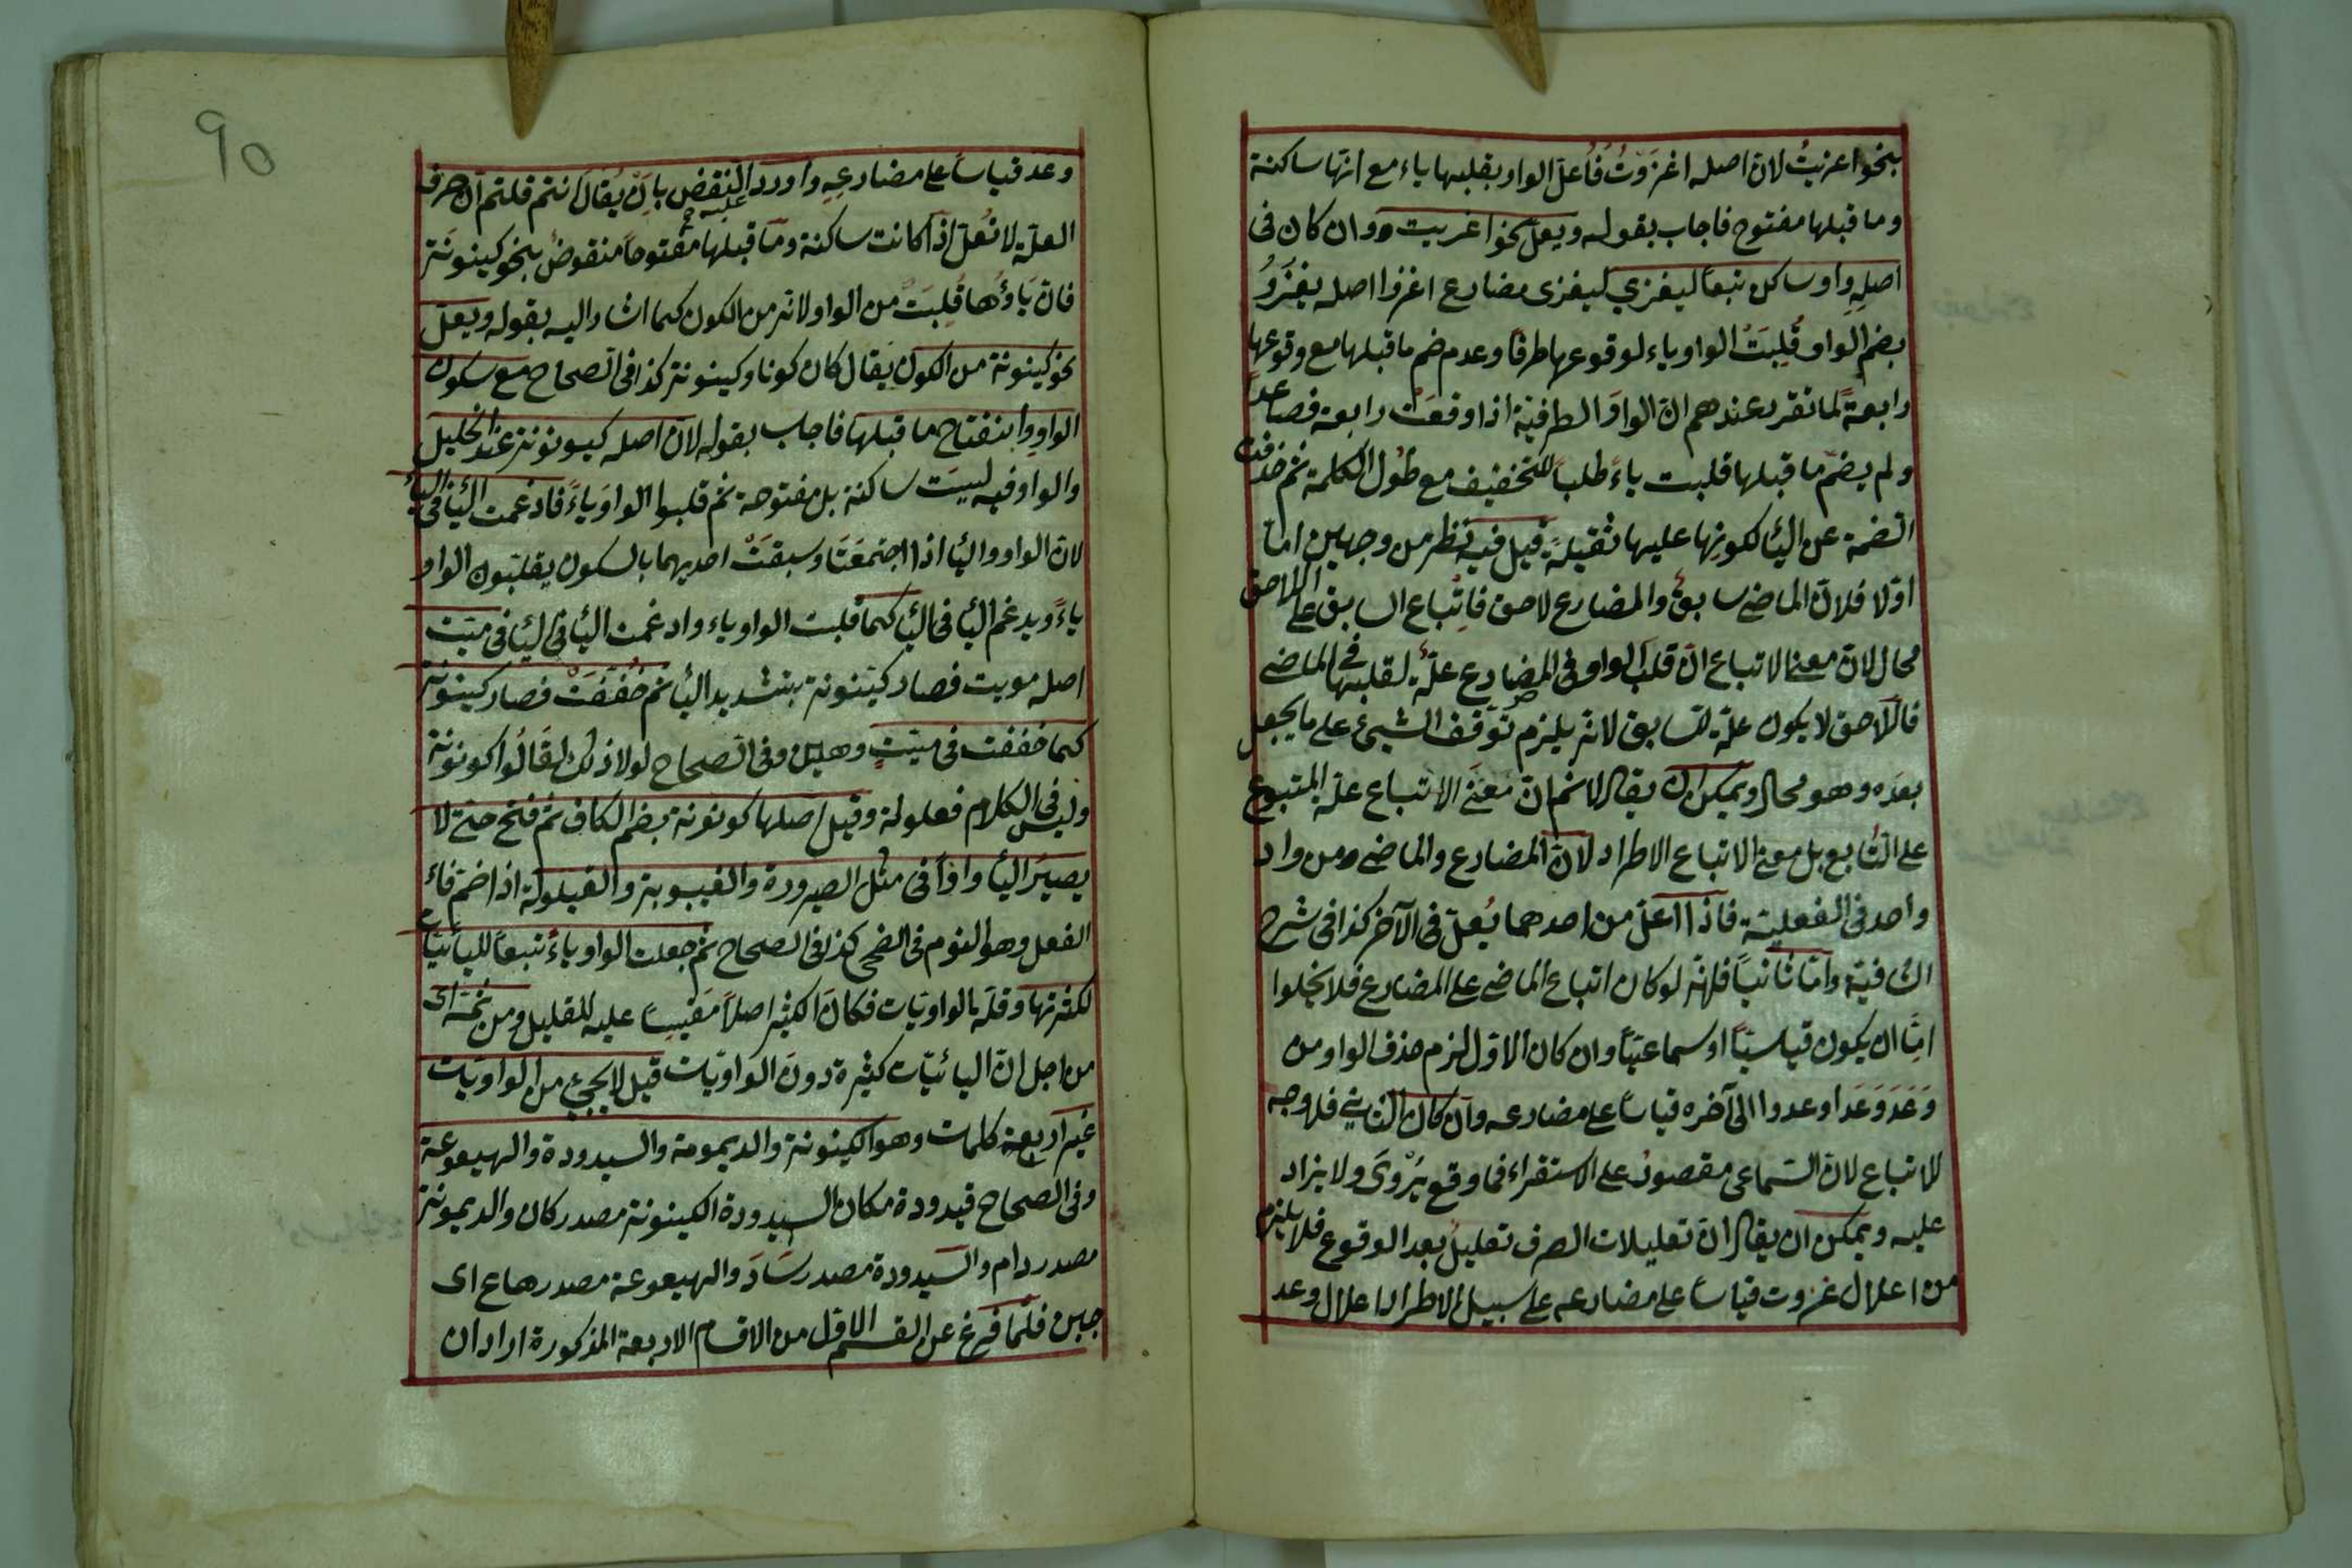 بنحو اغزيتُ لان اصله اغزَوْتُ فاُعلّ الواو بقلبها ياء مع انها ساكنة
وما قبلها مفتوح فاجاب بقوله ويعلّ نحو اغزيت ووان كان فى
اصلِهِ واو ساكن تبعاً ليغزي ليغزى مضارع اغزوا اصله يغزوُ
بضم الواو قُلِبَتْ الواو ياء لوقوعها طرفًا وعدم ضم ما قبلها مع وقوعها
رابعةً لما تقرر عندهم انّ الواوَ الطرفيّة اذا وقعَتْ رابعة فصاعداً
ولم يضمّ ما قبلها قلبت ياءً طلباً للتخفيف مع طُول الكلمة ثم حذفت
الضمة عن اليأ لكونِها عليها ثقيلةً قيل فيه نظر من وجهين امّا
اوّلا فلانّ الماضى سابقٌ والمضارع لاحق فاِتْباع السابق على اللاحق
محال لانّ معنى الاتباع انّ قلبَ الواو فى المضارع علّةٌ لقلبها فى الماضى
فاللاحق لا يكون علّة للسابق لانه يلزم توقف الشيئ على ما يحصل
بعدَه وهو محال ويمكن ان يقال لا نم ان معنَى الاتباع علة المتبوع
على التابع بل معنى الاتباع الاطراد لانّ المضارع والماضى ومن واد
واحد فى الفعلية فاذا اعلّ من احدهما يُعلّ فى الآخر كذا فى شرح
الشافية وامّا ثانياً فلانّه لو كان اتباع الماضى على المضارع فلا يخلوا
امّا ان يكون قياسيّاً او سماعيّاً وان كان الاوّل لزم حذف الواو من
وَعَدَ وَعَدَا وعدوا الى آخره قياساً على مضارعه وان كان الثانى فلا وجه
للاتباع لانّ السّماعى مقصورٌ على الاستقراء فما وقع يُرْوَى ولا يزاد
عليه ويمكن ان يقال انّ تعليلات الصرف تعليلٌ بعد الوقوع فلا يلزم
من اعلال غزوت قياساً على مضارعه على سبيل الاطراد اعلال وعد
90
وعد قياساً على مضارعِهِ واورد النقض عليه بانْ يُقال انتم قلتم انّ حرف
العلّة لا تُعلّ اذا كانت ساكنة وما قبلها مفتوحاً منقوض بنحو كينونة
فانّ يَاؤُها قُلِبَتْ من الواو لانه من الكون كما اشار اليه بقوله ويعلّ
نحو كينونة من الكون يقال كان كونا وكينونة كذا فى الصحاح مع سكون
الواو وانفتاح ما قبلها فاجاب بقوله لانّ اصله كيونونة عند الخليل
والواو فيه ليسَت ساكنة بل مفتوحة ثم قلبوا الواوَ ياءً فادغمت اليأ فى اليأ
لان الواو واليأ اذا اجتمعَتَا وسبقَتْ احديهما بالسكون يقلبون الواو
ياءً ويدغم اليأ فى اليأ كما قلبت الواو ياء وادغمت اليأ فى اليأ فى ميّت
اصله مويت فصار كيّنونة بتشديد اليأ ثم خُفّفَتْ فصار كينونة
كما خففت فى ميّتٍ وهيّن وفى الصحاح لولا ذلك لقَالُوا كونونة
وليس فى الكلام فعلولة وقيل اصلها كونونة بضم الكاف ثم فتح حتى لا
يصيرَ اليأ واواً فى مثل الصيرورة والغيبوبة والقيلولة اذا ضم فاء
الفعل وهو النوم فى الضحى كذا فى الصحاح ثم جعلت الواو ياءً تبعاً لليائيات
لكثرتها وقلة الواويّات فكانَ الكثير اصلاً مقيساً عليه للقليل ومن ثَمّة اى
من اجل انّ اليائيّات كثيرة دونَ الواويّات قيل لا يجئ من الواويّات
غير اربعة كلمات وهو الكينونة والديمومة والسيدودة والهيعوعة
وفى الصحاح قيدودة مكان السيدودة الكينونة مصدر كان والديمونة
مصدر دام والسيدودة مصدر سَادَ والهيعوعة مصدر هاع اى
جبن فلمّا فرغ عن القسم الاول من الاقسام الاربعة المذكورة اراد ان